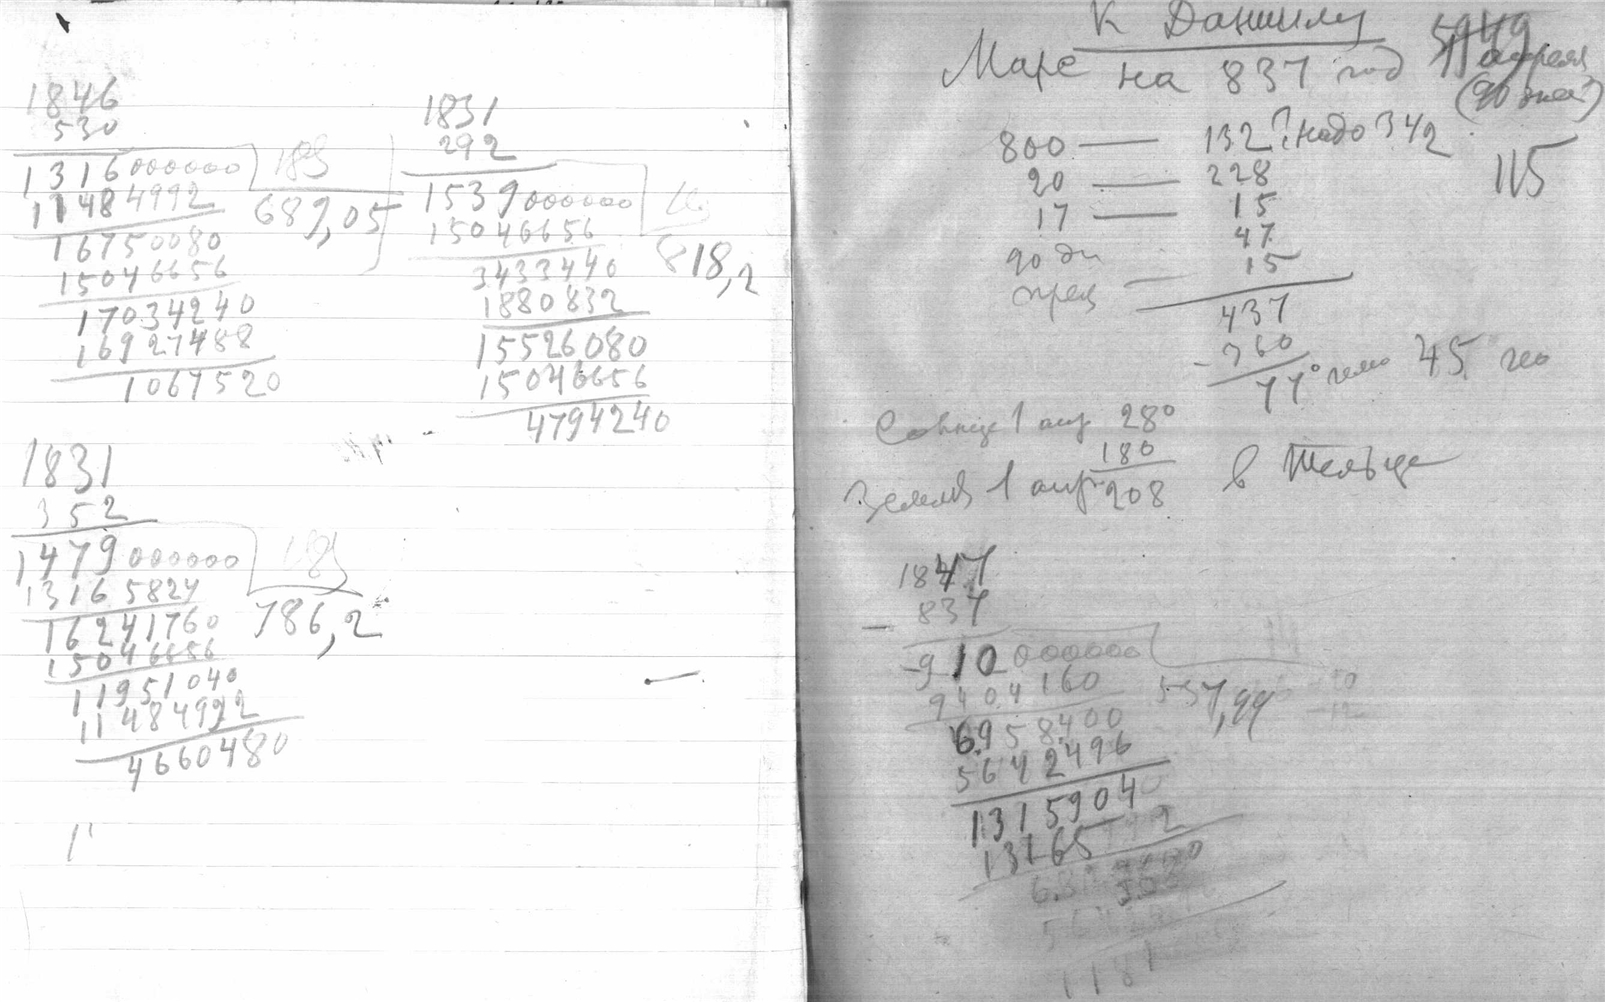 1846
530
1316000000 188
11484992 689,05
16750080
15046656
17034240
16927488
1067520
1831
292
1539000000
15046656 818,2
3433440
1880832
15526080
15046656
4794240
1831
352
1479000000 188
13165824 786,2
16241760
15046656
11951040
11484992
4660480
К Даниилу
Марс на 837 год апреля
(90 дней)
800 — 132? надо 342
20 — 228 115
17 — 15
90 дн 47
— 15
437
- 360
77° гелио 45 гео
Солнце 1 апр 280
180
Земля 1 апр 208 в Тельце
1847
- 837
-910000000
9404160 537,99
6958400
5642496
1315904
1181